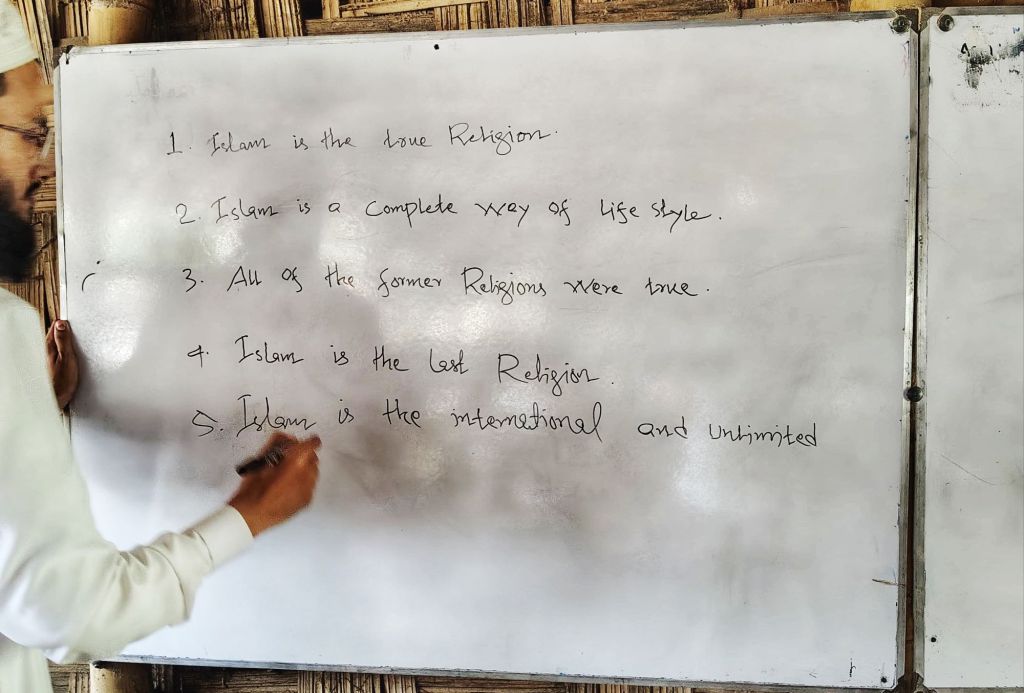 1. Islam is the true Religion.
2. Islam is a complete way of life style.
3. All of the former Religions were true.
4. Islam is the last Religion.
5. Islam is the international and Unlimited